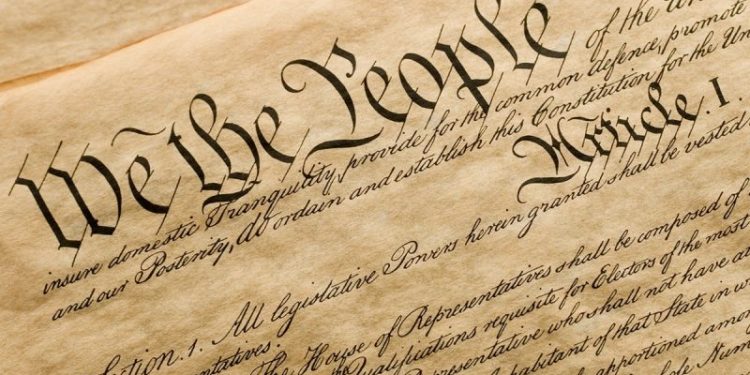 We the People of the Un
insure domestic Tranquility, provide for the common defence, promote
and our Posterity, do ordain and establish this Constitution for the Un
Article. I.
Section. 1. All legislative Powers herein granted shall be vested
entatives.
The House of Representatives shall be composed of
Qualifications requisite for Electors of the most
Representative who shall not have a
habitant of that State in w
apportioned amon
ole Num